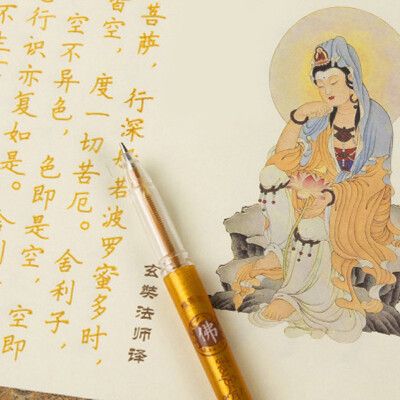 菩萨，行深般若波罗蜜多时，
皆空，度一切苦厄。舍利子，
空不异色，色即是空，空即
行识亦复如是。舍利
不生
玄奘法师译
佛